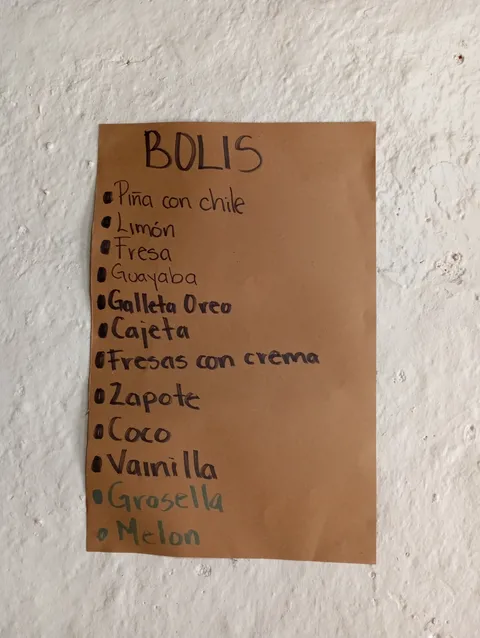 BOLIS
Piña con chile
Limón
Fresa
Guayaba
Galleta Oreo
Cajeta
Fresas con crema
Zapote
Coco
Vainilla
Grosella
Melon